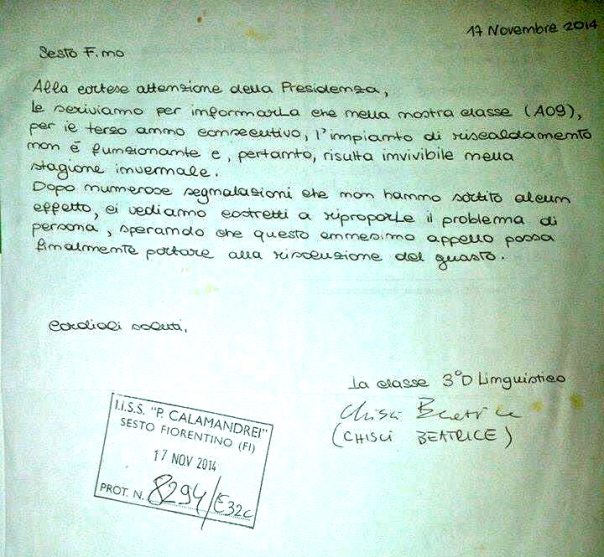 17 Novembre 2014
Sesto F.mo
Alla cortese attenzione della Presidenza,
le scriviamo per informarLa che nella nostra classe (A09),
per il terzo anno consecutivo, l'impianto di riscaldamento
non è funzionante e, pertanto, risulta invivibile nella
stagione invernale.
Dopo numerose segnalazioni che non hanno sortito alcun
effetto, ci vediamo costretti a riproporLe il problema di
persona, sperando che questo ennesimo appello possa
finalmente portare alla risoluzione del guasto.
Cordiali saluti,
La classe 3°D Linguistico
Chisci Beatrice
(CHISCI BEATRICE)
I.I.S.S. "P. CALAMANDREI"
SESTO FIORENTINO (FI)
17 NOV 2014
PROT. N. 8294/E32c